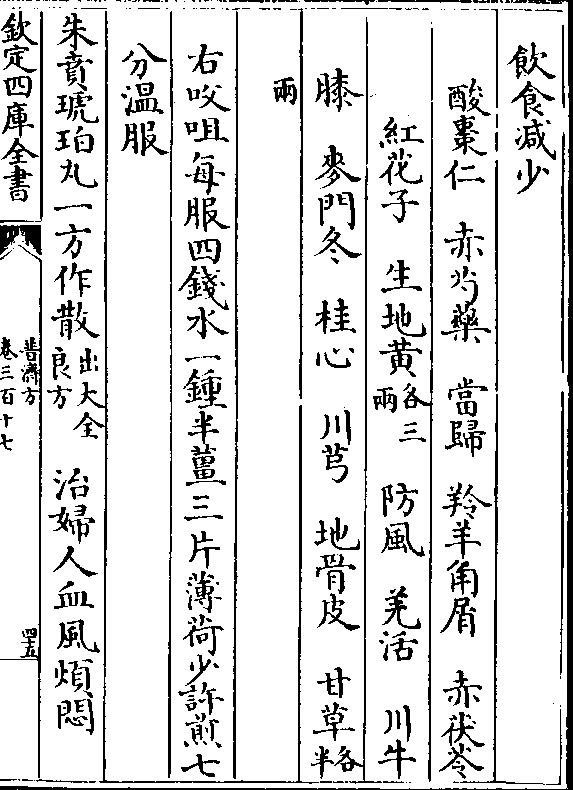 飲食减少
酸棗仁　赤芍藥　當歸　羚羊角屑　赤茯苓
紅花子　生地黃各三兩　防風　羌活　川牛
膝　麥門冬　桂心　川芎　地骨皮　甘草各半
兩
右㕮咀每服四錢水一鍾半薑三片薄荷少許煎七
分温服
朱賁琥珀丸一方作散出大全良方　治婦人血風煩悶
欽定四庫全書
普濟方
卷三百十七
四五